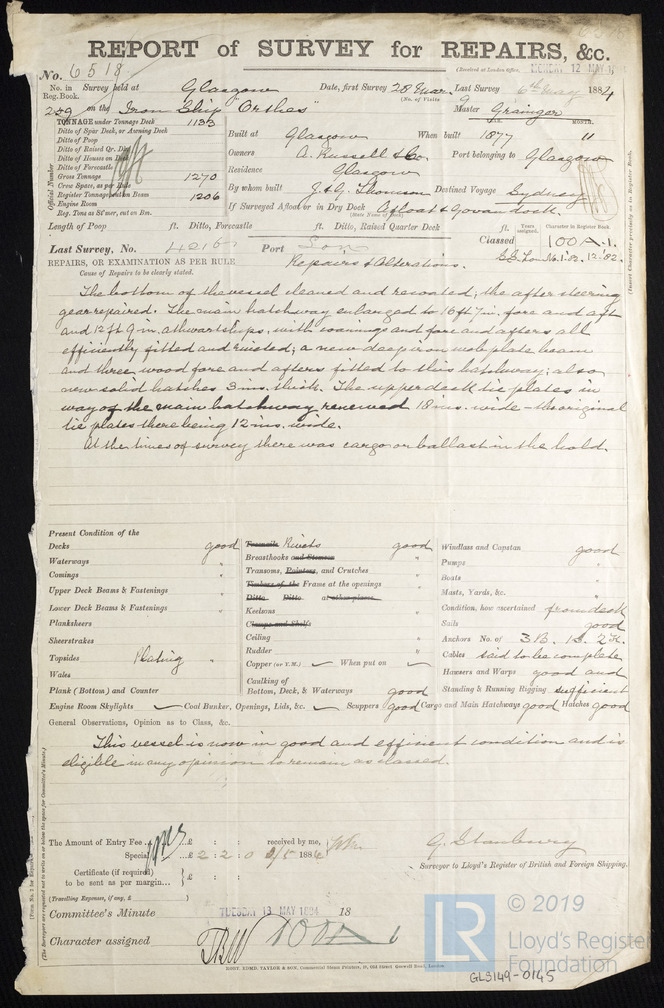 REPORT of SURVEY for REPAIRS, &c.
No. 6518
(Received at London Office, MONDAY 12 MAY
No. in Reg. Book. 239
Survey held at Glasgow Date, first Survey 28 Mar. Last Survey 6th May 1884
(No. of Visits 9
on the Iron Ship "Orthes" Master Grainger
TONNAGE under Tonnage Deck 1133
Ditto of Spar Deck, or Awning Deck
Ditto of Poop
Ditto of Raised Qr. Dk.
Ditto of Houses on Deck
Ditto of Forecastle
Gross Tonnage 1270
Crew Space, as per Rule
Register Tonnage as cut on Beam 1206
Engine Room
Reg. Tons as St'mer, cut on Bm.
Official Number
Built at Glasgow When built 1877 MONTH. 11
Owners A. Russell & Co. Port belonging to Glasgow
Residence Glasgow
By whom built J. & G. Thomson Destined Voyage Sydney
If Surveyed Afloat or in Dry Dock Afloat & Govan dock.
(State Name of Dock)
Length of Poop ft. Ditto, Forecastle ft. Ditto, Raised Quarter Deck ft.
Years assigned. Character in Register Book.
Last Survey, No. Port Lon Classed 100 A.1.
REPAIRS, OR EXAMINATION AS PER RULE
Cause of Repairs to be clearly stated.
Repairs & Alterations.
The bottom of the vessel cleaned and recoated; the after steering
gear repaired. The main hatchway enlarged to 16 ft 7 in. fore and aft
and 12 ft 9 in. athwartships, with coamings and fore and afters all
efficiently fitted and riveted; a new deep iron web plate beam
and three wood fore and afters fitted to this hatchway; also
new solid hatches 3 ins. thick. The upper deck tie plates in
way of the main hatchway renewed 18 ins. wide - the original
tie plates there being 12 ins. wide.
At the times of survey there was cargo or ballast in the hold.
Present Condition of the
Decks good
Waterways "
Comings "
Upper Deck Beams & Fastenings "
Lower Deck Beams & Fastenings "
Planksheers
Sheerstrakes
Topsides Plating "
Wales
Plank (Bottom) and Counter
Treenails Rivets good
Breasthooks and Stemson "
Transoms, Pointers, and Crutches "
Timbers of the Frame at the openings "
Ditto Ditto at other places
Keelsons "
Clamps and Shelfs
Ceiling "
Rudder "
Copper (or Y.M.) ✓ When put on ✓
Caulking of
Bottom, Deck, & Waterways good
Windlass and Capstan good
Pumps "
Boats "
Masts, Yards, &c. "
Condition, how ascertained from deck
Sails good
Anchors No. of 3 B. 1 S. 2 K.
Cables said to be complete
Hawsers and Warps good and
Standing & Running Rigging sufficient
Engine Room Skylights ✓ Coal Bunker, Openings, Lids, &c. ✓ Scuppers good Cargo and Main Hatchways good Hatches good
General Observations, Opinion as to Class, &c.
This vessel is now in good and efficient condition and is
eligible in my opinion to remain as classed.
The Amount of Entry Fee ..£ : : received by me,
Special ..£ 2 : 2 : 0 188
Certificate (if required) to be sent as per margin... } £ : :
(Travelling Expenses, if any, £ )
G. Stanbury
Surveyor to Lloyd's Register of British and Foreign Shipping.
Committee's Minute TUESDAY 13 MAY 1884 18
Character assigned 100 A
ROBT. EDMD. TAYLOR & SON, Commercial Steam Printers, 19, Old Street Goswell Road, London.
© 2019
LR
Lloyd's Register
Foundation
GLS149-0145